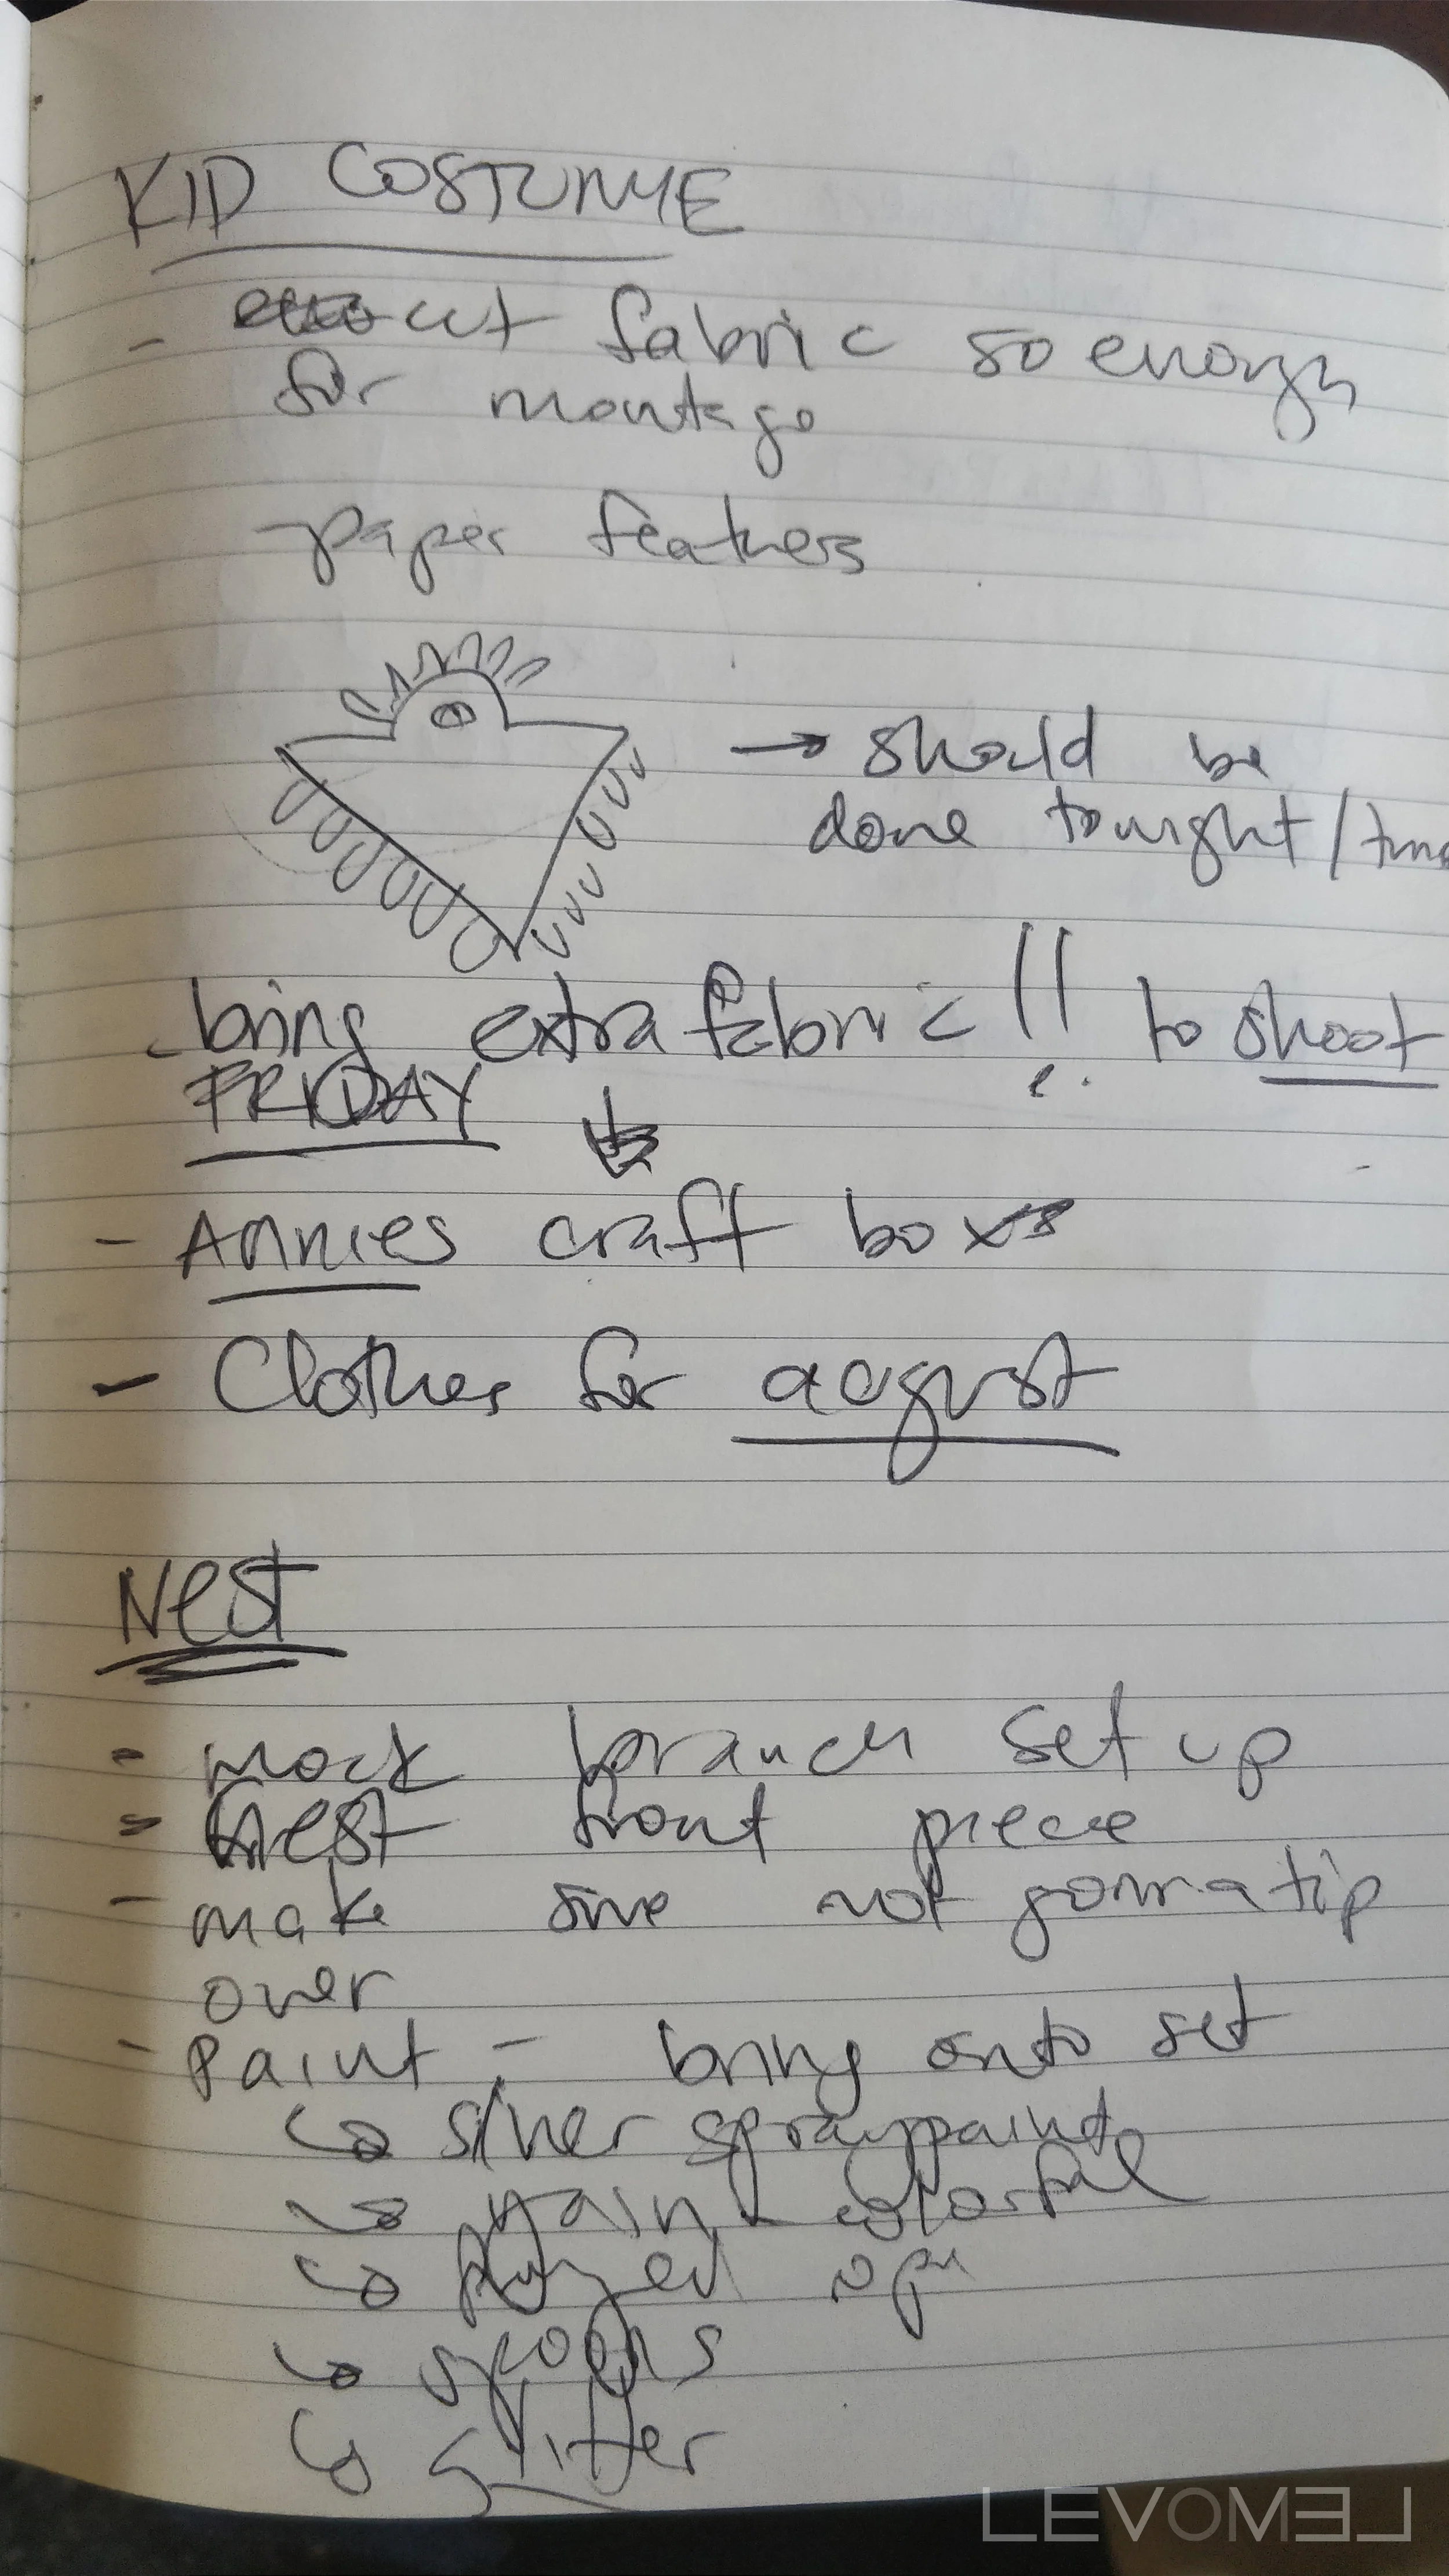 KID COSTUME
- cut fabric so enough
for montage
- paper feathers
→ should be
done tonight /
- bring extra fabric !! to shoot
FRIDAY
- Annies craft box
- Clothes for august
Nest
- mock branch set up
- nest front piece
- make sure not gonna tip
over
- Paint - bring onto set
↳ silver spraypaint
↳ colorful
↳
↳ spoons
↳ glitter
LEVOMEL